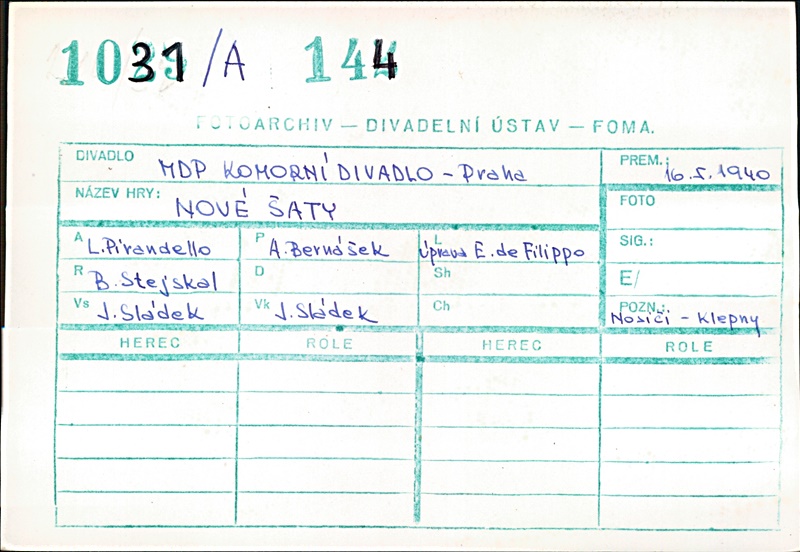 1031/A 144
FOTOARCHIV — DIVADELNÍ ÚSTAV — FOMA.
DIVADLO MDP KOMORNÍ DIVADLO - Praha
PREM.: 16.5.1940
NÁZEV HRY: NOVÉ ŠATY
FOTO
A L.Pirandello
P A.Bernášek
L Úprava E. de Filippo
SIG.:
R B.Stejskal
D
Sh
E/
Vs J.Sládek
Vk J.Sládek
Ch
POZN.: Nosiči - Klepny
HEREC RÓLE HEREC ROLE